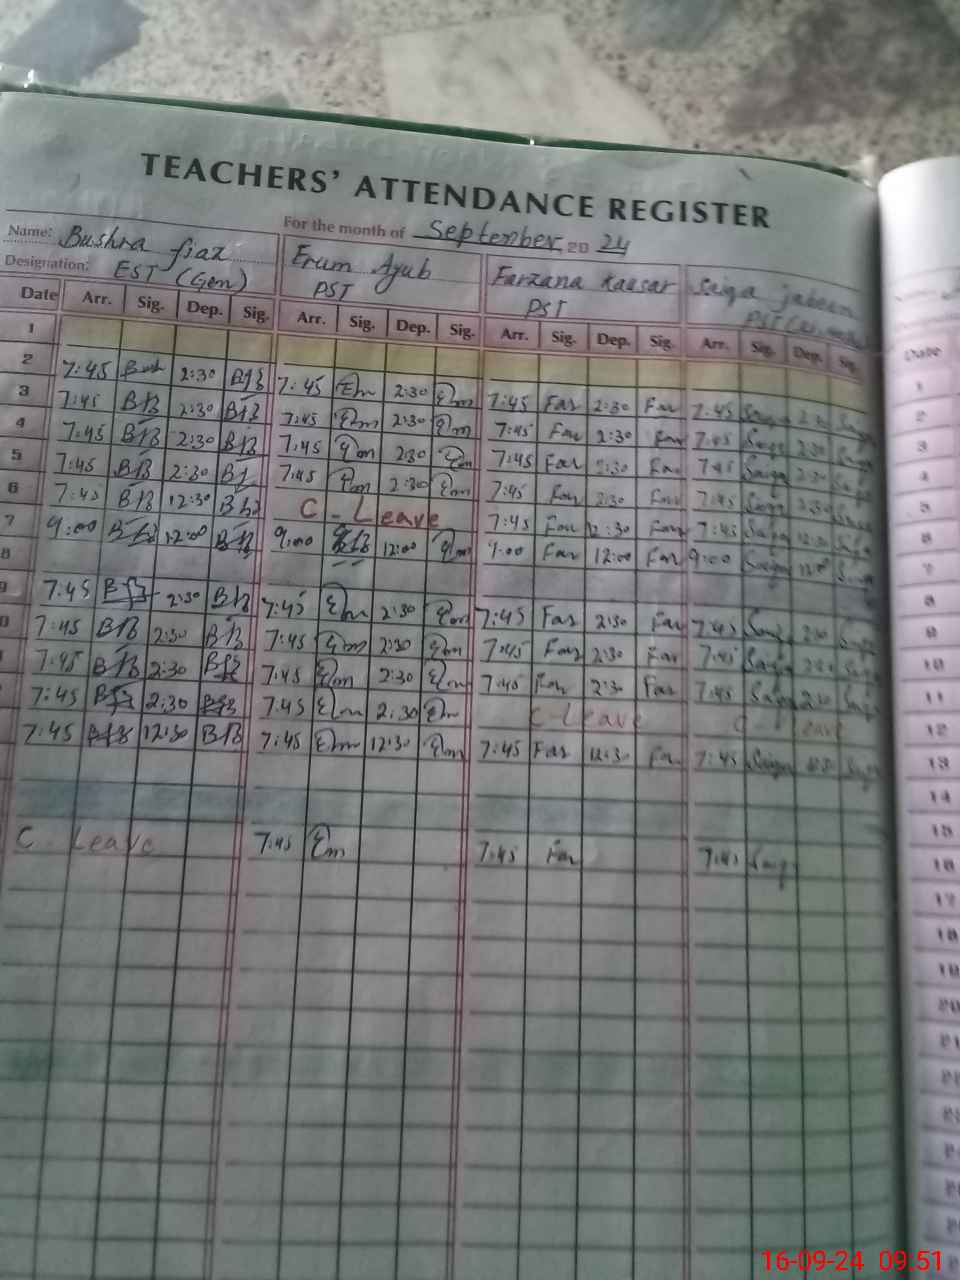 TEACHERS' ATTENDANCE REGISTER
For the month of September 2024
Name: Bushra fiaz Erum Ayub Farzana Kausar Saiqa jabeen
Designation: EST (Gen) PST PST PST
Date Arr. Sig. Dep. Sig. Arr. Sig. Dep. Sig. Arr. Sig. Dep. Sig. Arr. Sig. Dep. Sig. Date
1
2 7:45 Bush 2:30 7:45 Em 2:30 Em 7:45 Far 2:30 Far 7:45 Saiqa 2:30 Saiqa
3 7:45 2:30 7:45 Em 2:30 Em 7:45 Far 2:30 Far 7:45 Saiqa 2:30 Saiqa
4 7:45 2:30 7:45 Em 2:30 Em 7:45 Far 2:30 Far 7:45 Saiqa 2:30 Saiqa
5 7:45 2:30 7:45 Em 2:30 Em 7:45 Far 2:30 Far 7:45 Saiqa 2:30 Saiqa
6 7:45 12:30 C - Leave 7:45 Far 12:30 Far 7:45 Saiqa 12:30 Saiqa
7 9:00 12:00 9:00 12:00 Em 9:00 Far 12:00 Far 9:00 Saiqa 12:00 Saiqa
8
9 7:45 2:30 7:45 Em 2:30 Em 7:45 Far 2:30 Far 7:45 Saiqa 2:30 Saiqa
7:45 2:30 7:45 Em 2:30 Em 7:45 Far 2:30 Far 7:45 Saiqa 2:30 Saiqa
7:45 2:30 7:45 Em 2:30 Em 7:45 Far 2:30 Far 7:45 Saiqa 2:30 Saiqa
7:45 2:30 7:45 Em 2:30 Em C-Leave C - Leave
7:45 12:30 7:45 Em 12:30 Em 7:45 Far 12:30 Far 7:45 Saiqa 12:30 Saiqa
C - Leave 7:45 Em 7:45 Far 7:45 Saiqa
1
2
3
4
5
6
7
8
9
10
11
12
13
14
15
16
17
18
19
20
21
16-09-24 09.51